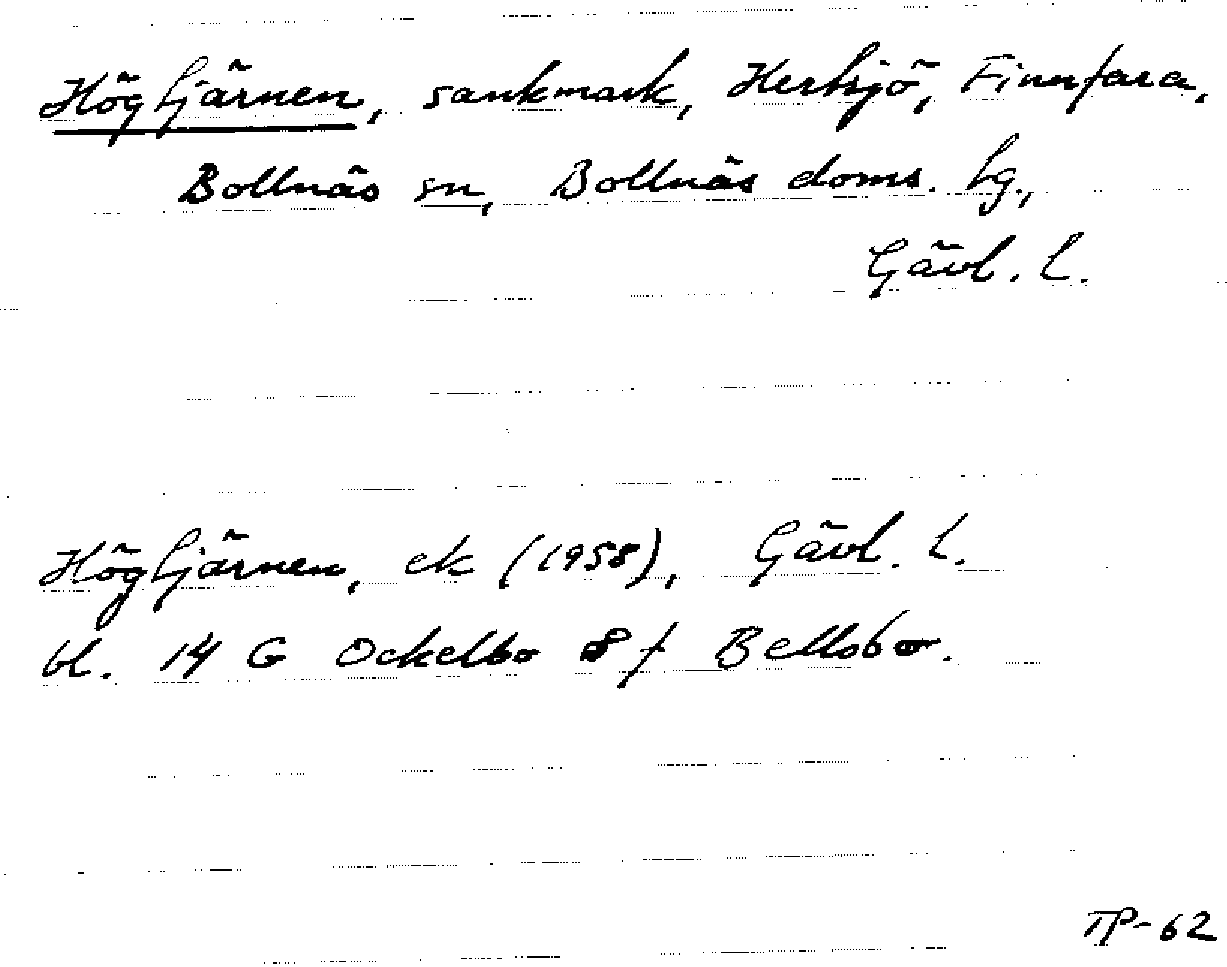 Högtjärnen, sankmark, Hertsjö, Finnfara,
Bollnäs sn, Bollnäs doms. tg.,
Gävl. l.
Högtjärnen, ek (1958), Gävl. l.
bl. 14 G Ockelbo 8f Bellsbo.
TP-62